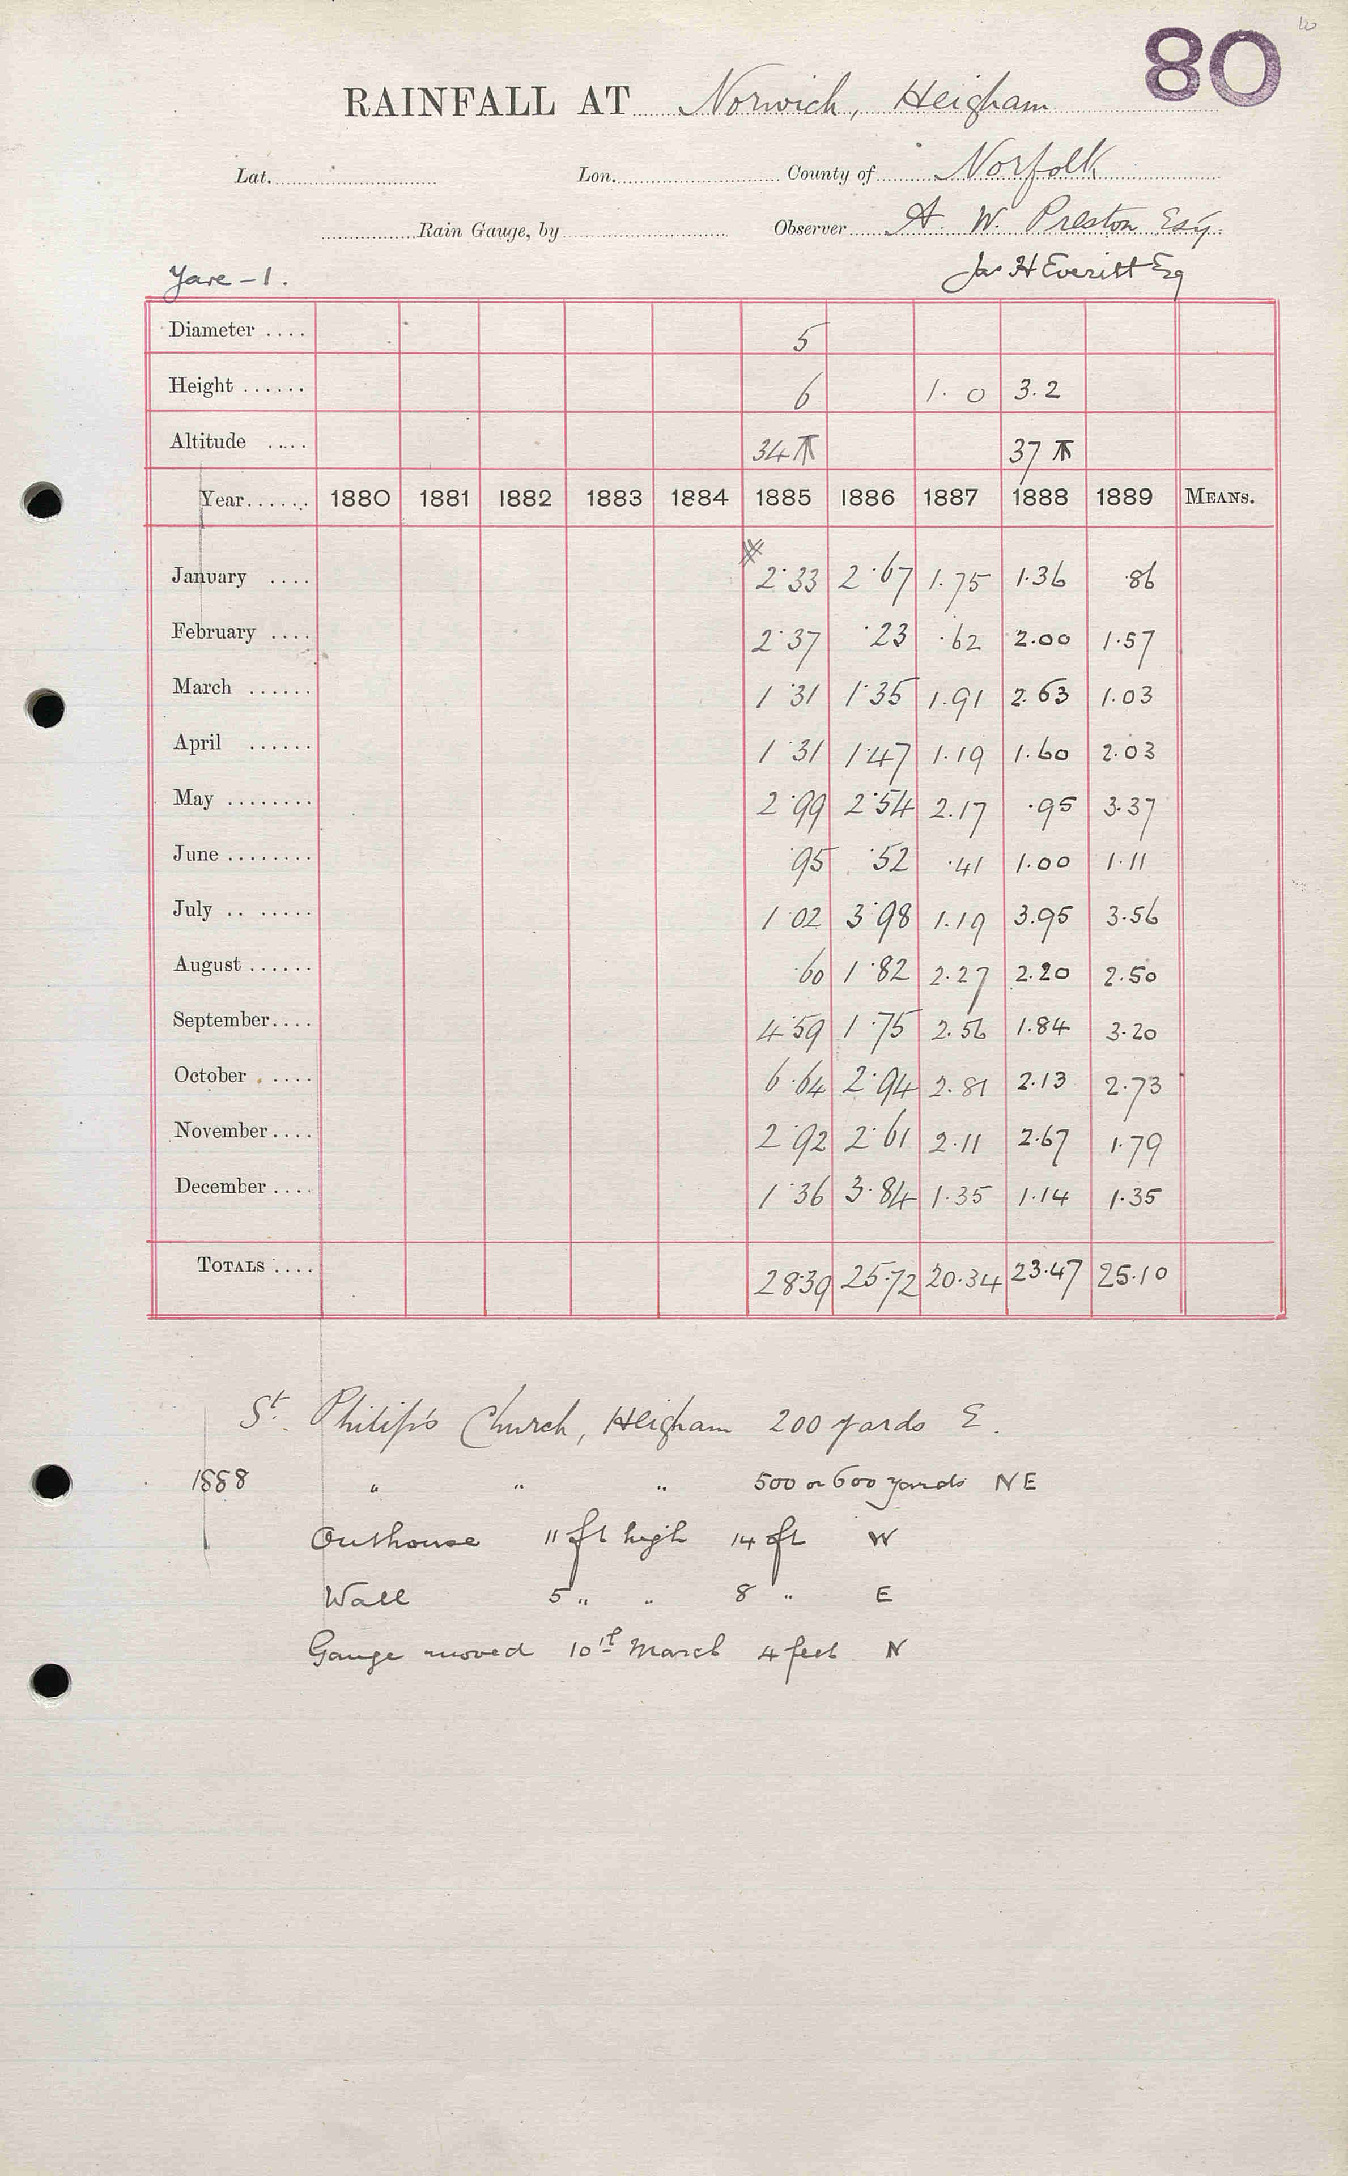 80
RAINFALL AT Norwich, Heigham
Lat. Lon. County of Norfolk
Rain Gauge, by Observer A. W. Preston Esq.
Yare - 1. Jas H Everitt Esq
Diameter .... 5
Height ...... 6 1. 0 3.2
Altitude .... 34 37
Year...... 1880 1881 1882 1883 1884 1885 1886 1887 1888 1889 MEANS.
January .... 2.33 2.67 1.75 1.36 .86
February .... 2.37 .23 .62 2.00 1.57
March ...... 1.31 1.35 1.91 2.63 1.03
April ...... 1.31 1.47 1.19 1.60 2.03
May ........ 2.99 2.54 2.17 .95 3.37
June ........ .95 .52 .41 1.00 1.11
July .. ..... 1.02 3.98 1.19 3.95 3.56
August ...... .60 1.82 2.27 2.20 2.50
September.... 4.59 1.75 2.56 1.84 3.20
October . .... 6.64 2.94 2.81 2.13 2.73
November.... 2.92 2.61 2.11 2.67 1.79
December .... 1.36 3.84 1.35 1.14 1.35
TOTALS .... 28.39 25.72 20.34 23.47 25.10
St. Philip's Church, Heigham 200 yards E.
1888 " " " 500 or 600 yards NE
Outhouse 11 ft high 14 ft W
Wall 5 " " 8 " E
Gauge moved 10th March 4 feet N